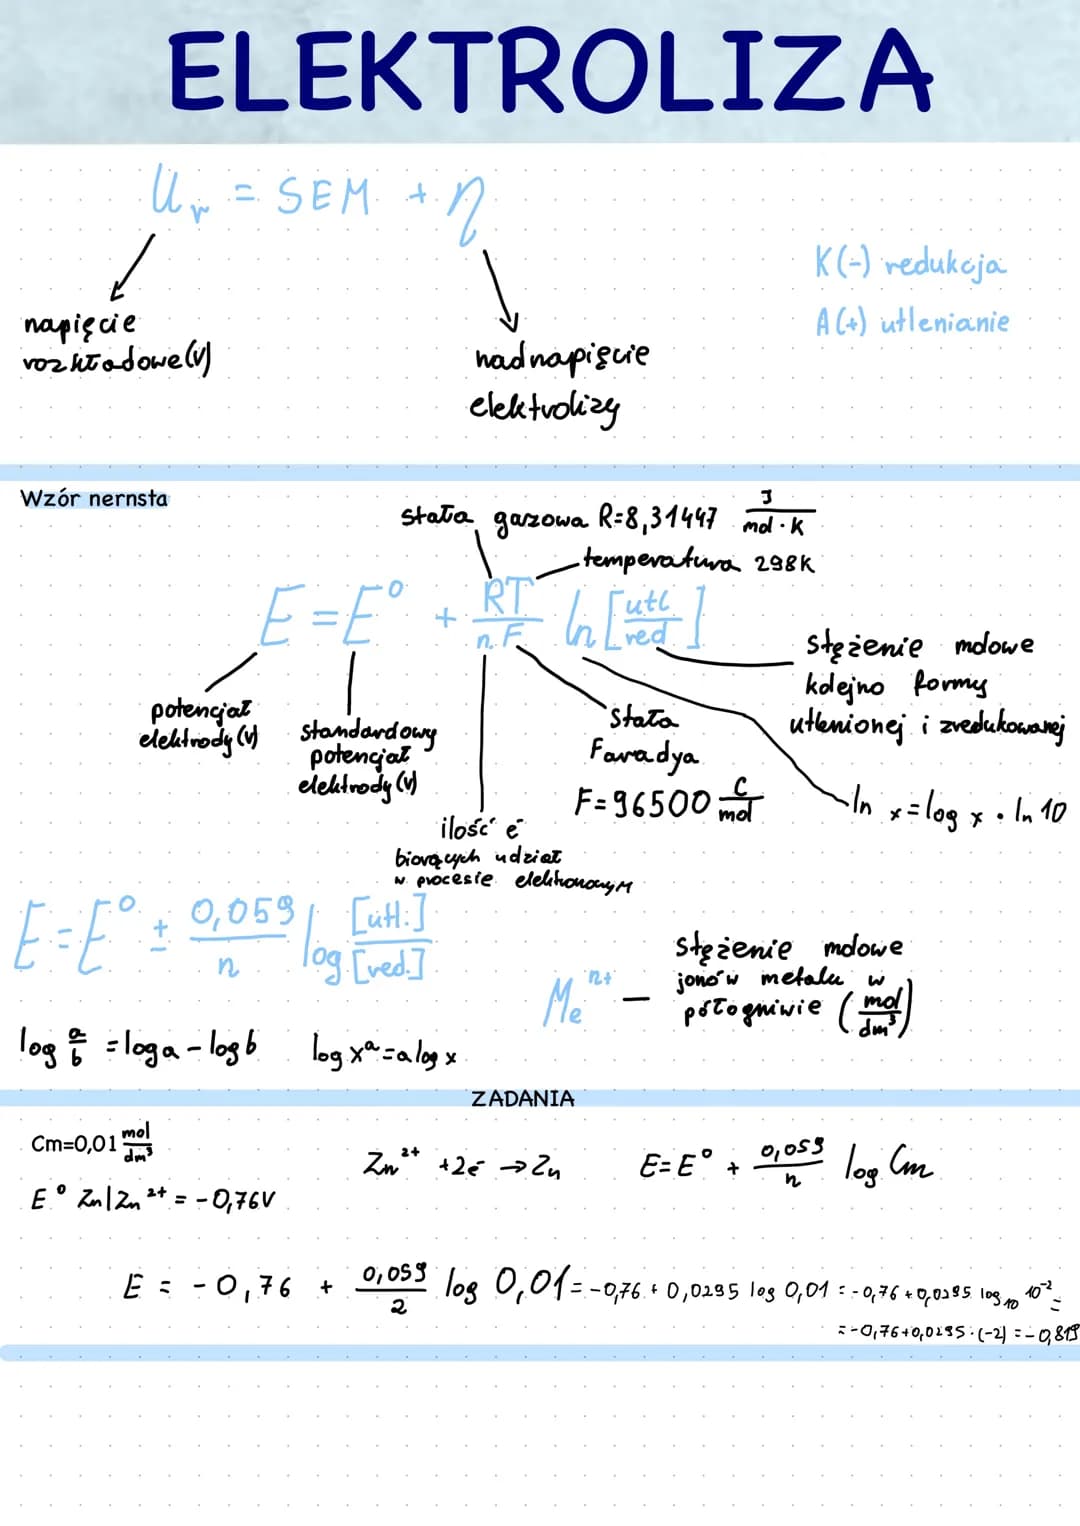 ELEKTROLIZA
U_r = SEM + η
K(-) redukcja
A(+) utlenianie
napięcie
rozkładowe (V)
nadnapięcie
elektrolizy
Wzór nernsta
stała gazowa R=8,31447 J/mol·K
temperatura 298K
E = E⁰ + RT/n.F ln [utl/red]
stężenie molowe
kolejno formy
utlenionej i zredukowanej
potencjał
elektrody (V)
standardowy
potencjał
elektrody (V)
Stała
Faradya
F=96500 C/mol
ln x = log x · ln 10
ilość e⁻
biorących udział
w procesie elektronowym
E = E⁰ ± 0,059/n log [utl.]/[red.]
Me^n+ — stężenie molowe
jonów metalu w
półogniwie (mol/dm³)
log a/b = log a - log b log xᵃ = a log x
ZADANIA
Cm=0,01 mol/dm³
Zn²⁺ +2e⁻ → Zn E=E⁰ + 0,059/n log Cm
E⁰ Zn|Zn²⁺ = -0,76V
E = -0,76 + 0,059/2 log 0,01 = -0,76 + 0,0295 log 0,01 = -0,76 + 0,0295 log₁₀ 10⁻² =
= -0,76+0,0295·(-2) = -0,819